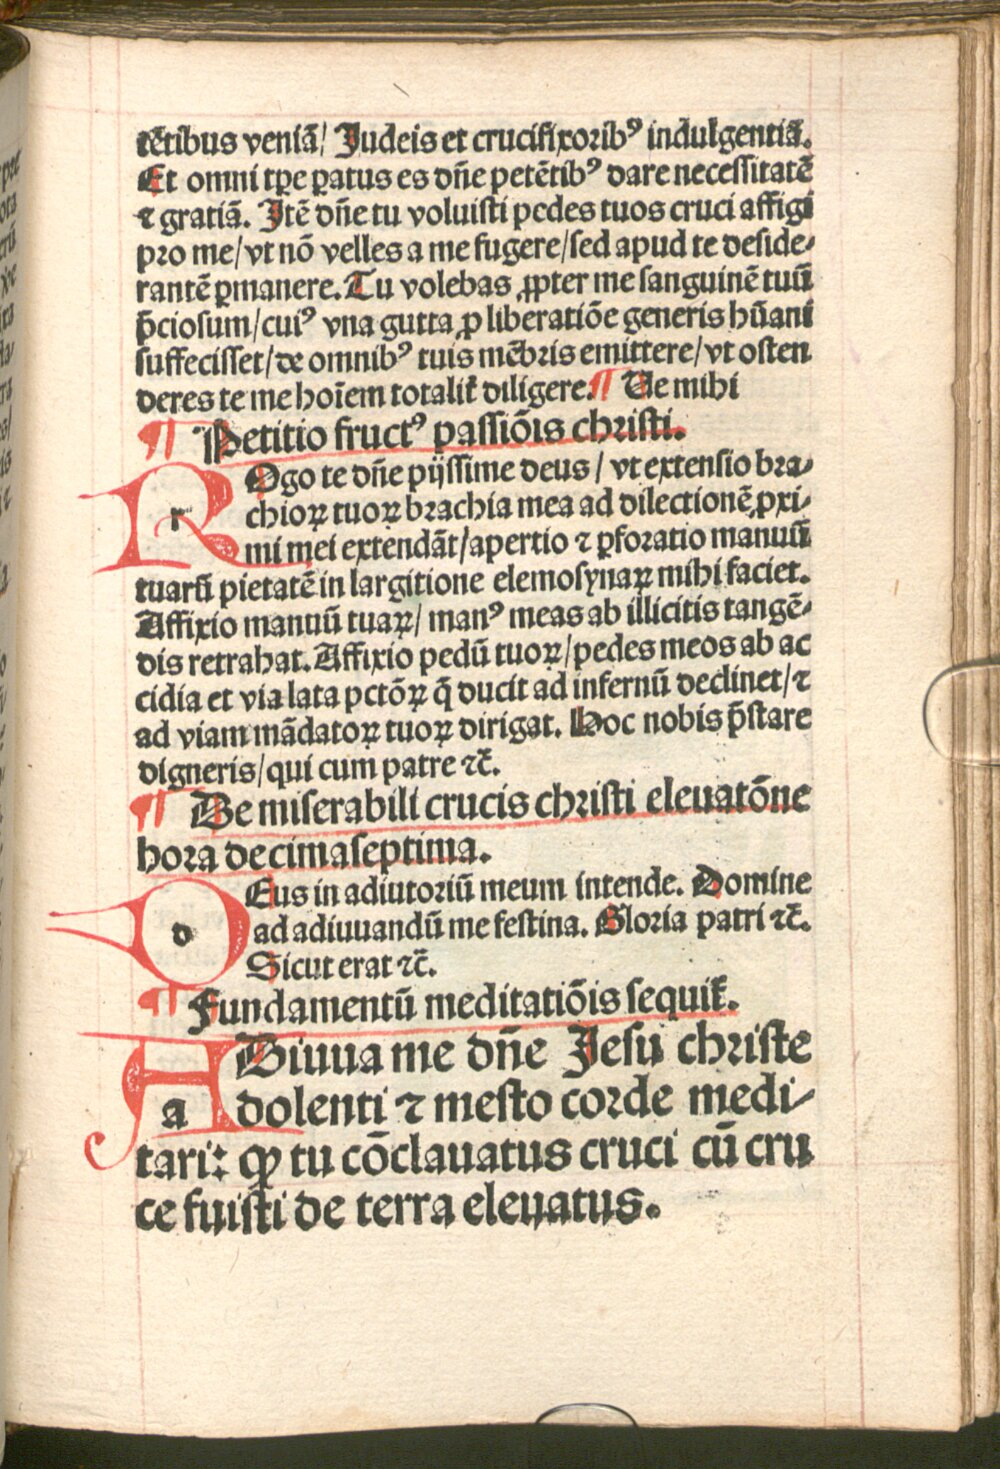 tētibus veniā/ Judeis et crucifixorib⁹ indulgentiā.
Et omni tꝑe ꝑatus es dn̄e petētib⁹ dare necessitatē
⁊ gratiā. Jtē dn̄e tu voluisti pedes tuos cruci affigi
pro me/ vt nō velles a me fugere/ sed apud te deside⸗
rantē ꝑmanere. Tu volebas ꝓpter me sanguinē tuū
p̄ciosum/ cui⁹ vna gutta ꝓ liberatiōe generis hūani
suffecisset/ de omnib⁹ tuis mēbris emittere/ vt osten
deres te me hoīem totalit̄ diligere. ¶ Ue mihi
¶ Petitio fruct⁹ passiōis christi.
ROgo te dn̄e pijssime deus / vt extensio bra⸗
chioꝝ tuoꝝ brachia mea ad dilectionē ꝓxi⸗
mi mei extendāt/ apertio ⁊ ꝑforatio manuū
tuarū pietatē in largitione elemosynaꝝ mihi faciet.
Affixio manuū tuaꝝ/ man⁹ meas ab illicitis tangē⸗
dis retrahat. Affixio pedū tuoꝝ/ pedes meos ab ac
cidia et via lata pctōꝝ q̄ ducit ad infernū declinet/ ⁊
ad viam mādatoꝝ tuoꝝ dirigat. Hoc nobis p̄stare
digneris/ qui cum patre ⁊c̄.
¶ De miserabili crucis christi eleuatōne
hora decimaseptima.
DEus in adiutoriū meum intende. Domine
ad adiuuandū me festina. Gloria patri ⁊c̄.
Sicut erat ⁊c̄.
¶ Fundamentū meditatiōis sequit̄.
ADiuua me dn̄e Jesu christe
dolenti ⁊ mesto corde medi⸗
tari: ꝙ tu cōclauatus cruci cū cru
ce fuisti de terra eleuatus.